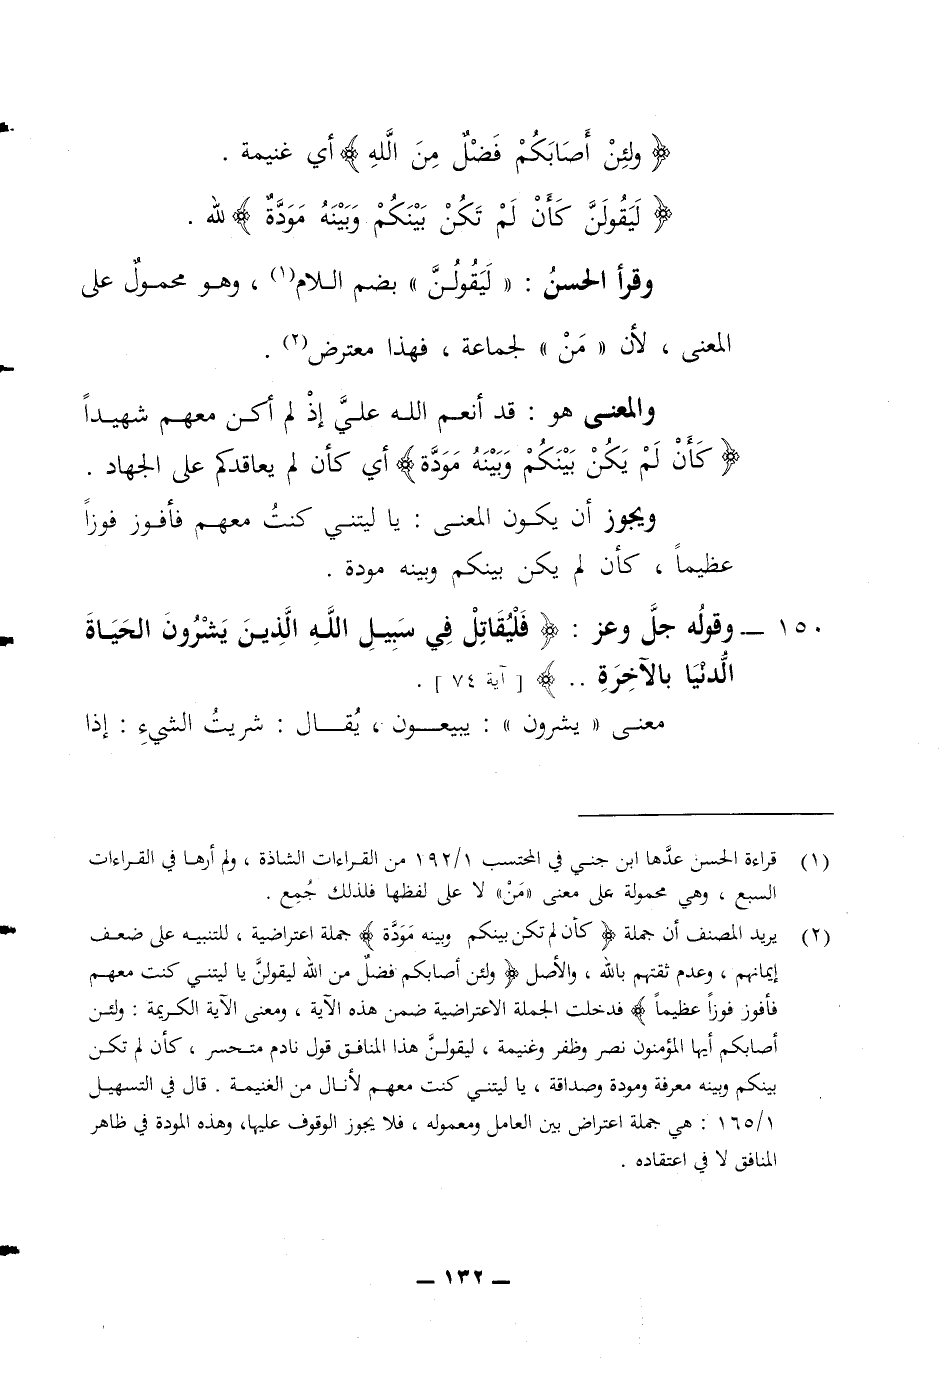 ﴿ ولئِنْ أَصَابَكُمْ فَضْلٌ مِنَ اللَّهِ ﴾ أي غنيمة .
﴿ لَيَقُولَنَّ كَأَنْ لَمْ تَكُنْ بَيْنَكُمْ وَبَيْنَهُ مَوَدَّةٌ ﴾ لله .
وقرأ الحسنُ : « لَيَقُولُنَّ » بضم اللام(١) ، وهو محمولٌ على
المعنى ، لأن « مَنْ » لجماعة ، فهذا معترض(٢) .
والمعنى هو : قد أنعم الله عليَّ إذْ لم أكن معهم شهيداً
﴿ كَأَنْ لَمْ يَكُنْ بَيْنَكُمْ وَبَيْنَهُ مَوَدَّة ﴾ أي كأن لم يعاقدكم على الجهاد .
ويجوز أن يكون المعنى : يا ليتني كنتُ معهم فأفوز فوزاً
عظيماً ، كأن لم يكن بينكم وبينه مودة .
١٥٠ ـ وقولُه جلَّ وعز : ﴿ فَلْيُقَاتِلْ فِي سَبِيلِ اللَّهِ الَّذِينَ يَشْرُونَ الحَيَاةَ
الُّدنْيَا بالآخِرَةِ .. ﴾ [ آية ٧٤ ] .
معنى « يشرون » : يبيعون ، يُقال : شريتُ الشيءِ : إذا
(١) قراءة الحسن عدَّها ابن جني في المحتسب ١٩٢/١ من القراءات الشاذة ، ولم أرها في القراءات
السبع ، وهي محمولة على معنى «مَنْ» لا على لفظها فلذلك جُمِع .
(٢) يريد المصنف أن جملة ﴿ كأن لم تكن بينكم وبينه مَوَدَّة ﴾ جملة اعتراضية ، للتنبيه على ضعف
إيمانهم ، وعدم ثقتهم بالله ، والأصل ﴿ ولئن أصابكم فضلٌ من الله ليقولنَّ يا ليتني كنت معهم
فأفوز فوزاً عظيماً ﴾ فدخلت الجملة الاعتراضية ضمن هذه الآية ، ومعنى الآية الكريمة : ولئن
أصابكم أيها المؤمنون نصر وظفر وغنيمة ، ليقولنَّ هذا المنافق قول نادم متحسر ، كأن لم تكن
بينكم وبينه معرفة ومودة وصداقة ، يا ليتني كنت معهم لأنال من الغنيمة . قال في التسهيل
١٦٥/١ : هي جملة اعتراض بين العامل ومعموله ، فلا يجوز الوقوف عليها، وهذه المودة في ظاهر
المنافق لا في اعتقاده .
ـ ١٣٢ ـ